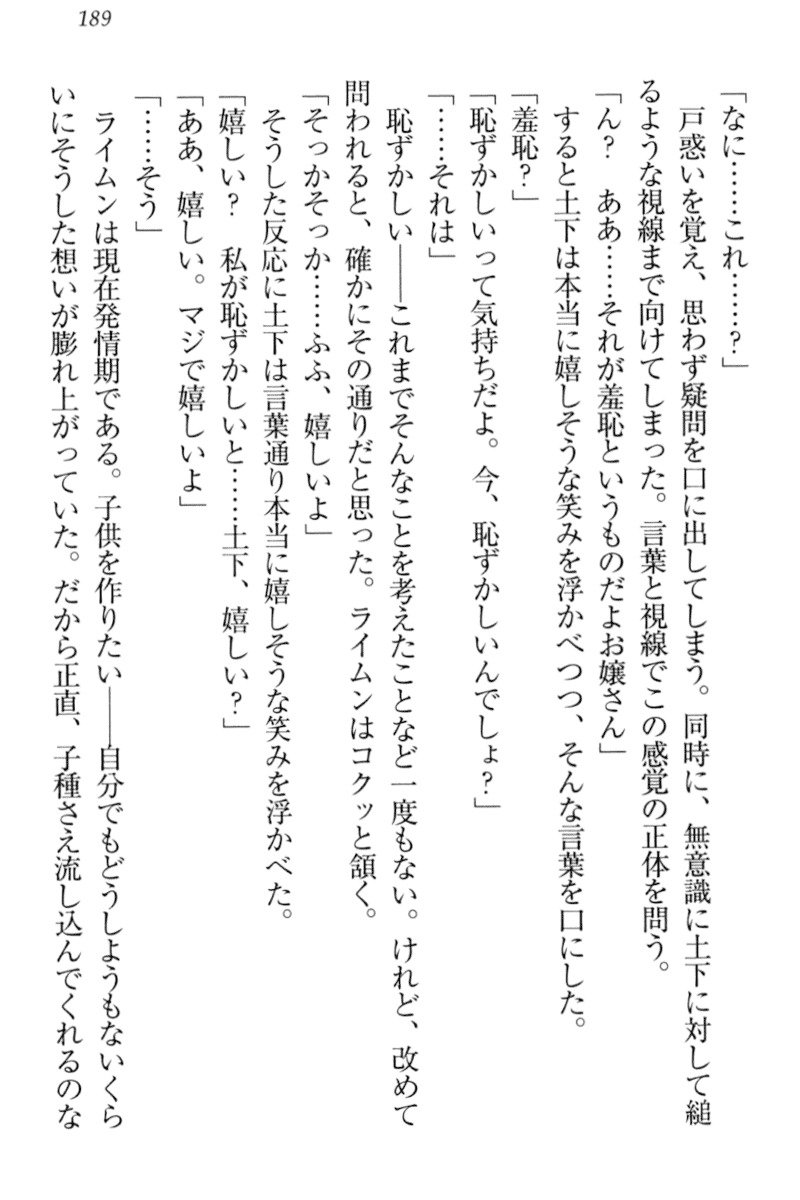 189
「なに……これ……？」
　戸惑いを覚え、思わず疑問を口に出してしまう。同時に、無意識に土下に対して縋
るような視線まで向けてしまった。言葉と視線でこの感覚の正体を問う。
「ん？　ああ……それが羞恥というものだよお嬢さん」
　すると土下は本当に嬉しそうな笑みを浮かべつつ、そんな言葉を口にした。
「羞恥？」
「恥ずかしいって気持ちだよ。今、恥ずかしいんでしょ？」
「……それは」
　恥ずかしい――これまでそんなことを考えたことなど一度もない。けれど、改めて
問われると、確かにその通りだと思った。ライムンはコクッと頷く。
「そっかそっか……ふふ、嬉しいよ」
　そうした反応に土下は言葉通り本当に嬉しそうな笑みを浮かべた。
「嬉しい？　私が恥ずかしいと……土下、嬉しい？」
「ああ、嬉しい。マジで嬉しいよ」
「……そう」
　ライムンは現在発情期である。子供を作りたい――自分でもどうしようもないくら
いにそうした想いが膨れ上がっていた。だから正直、子種さえ流し込んでくれるのな